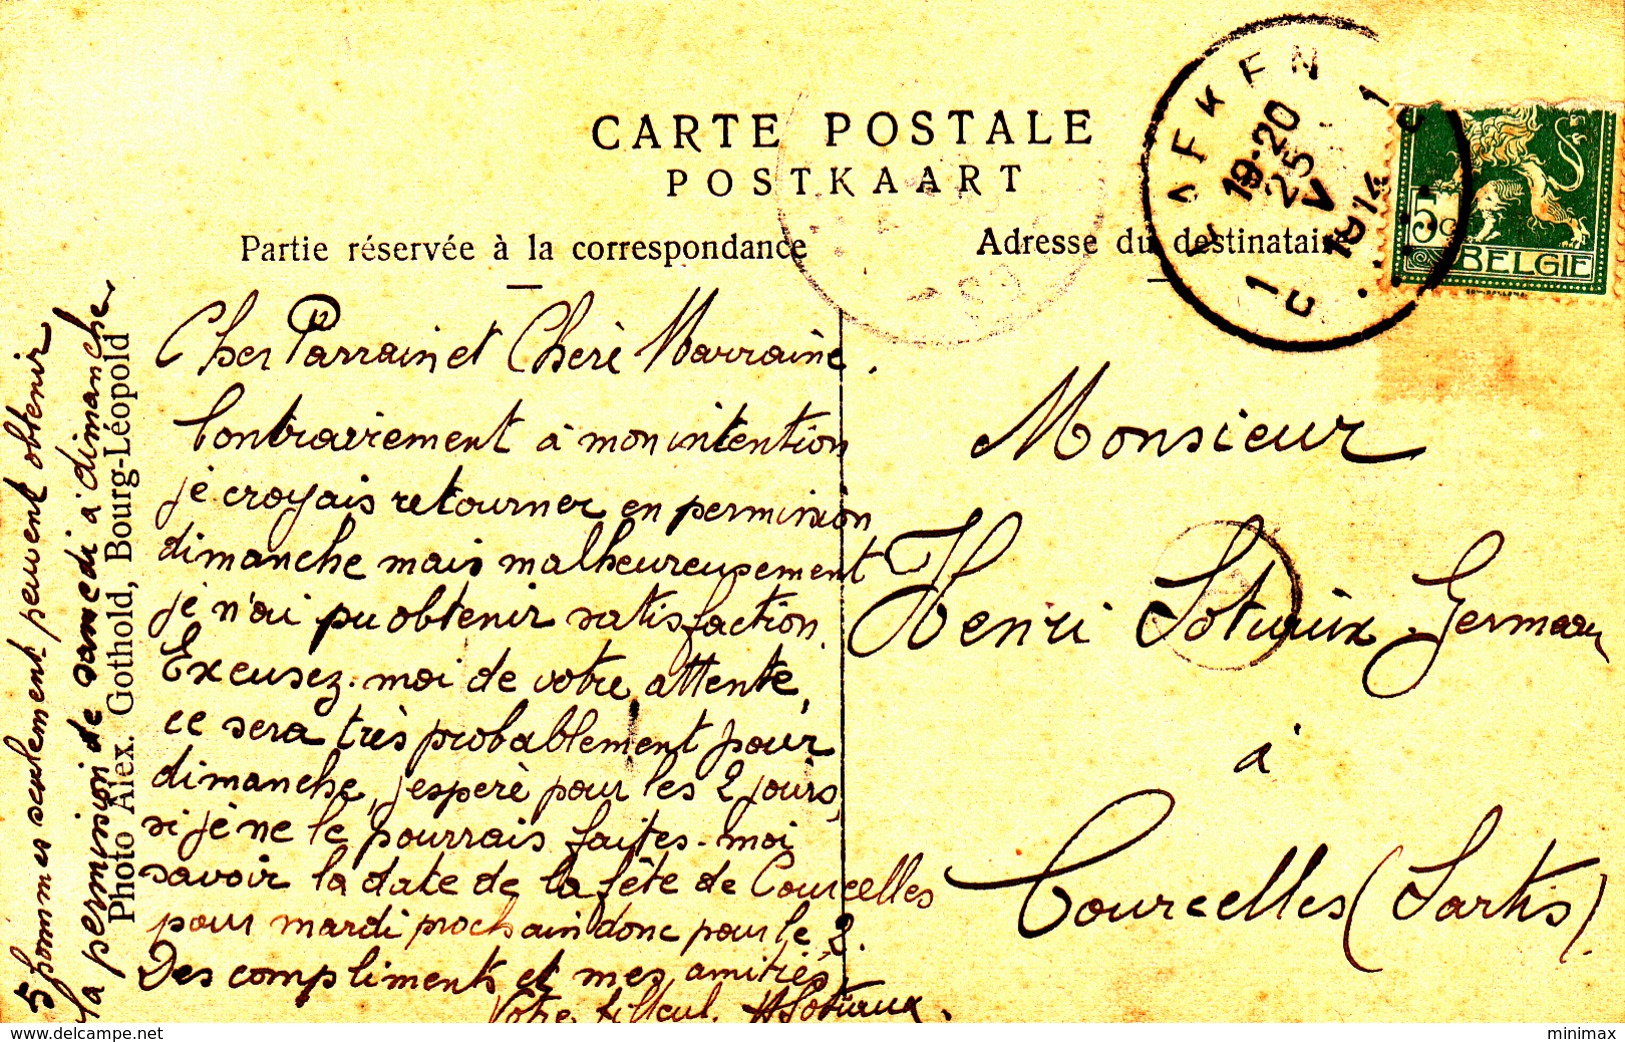 CARTE POSTALE
POSTKAART
Partie réservée à la correspondance
Adresse du destinataire
19-20
25
V
1914
1 C
C 1
5c
BELGIE
Cher Parrain et Cheré Marraine.
Contrairement à mon intention
je croyais retourner en permission
dimanche mais malheureusement
je n'ai pu obtenir satisfaction.
Excusez-moi de votre attente,
ce sera très probablement pour
dimanche, j'esperè pour les 2 jours,
si je ne le pourrais faites-moi
savoir la date de la fête de Courcelles
pour mardi prochain donc pour le 2.
Des compliments et mes amitiés,
Votre filleul.
5 hommes seulement peuvent obtenir
la permission de samedi à dimanche
Photo Alex. Gothold, Bourg-Léopold
Monsieur
Henri
à
Courcelles (Sartis)
www.delcampe.net
minimax